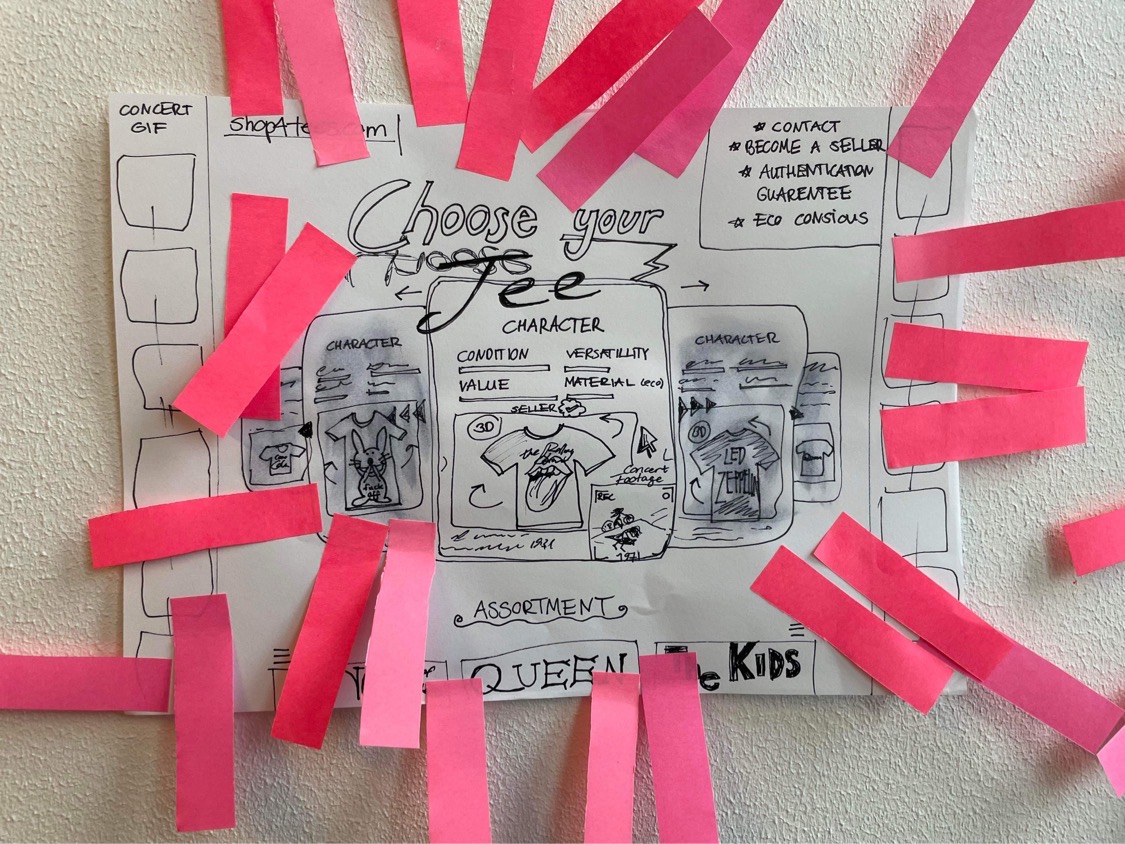 CONCERT
GIF
☆ CONTACT
☆ BECOME A SELLER
☆ AUTHENTICATION
GUARENTEE
☆ ECO CONSIOUS
Choose your
Tee
CHARACTER
CONDITION
VERSATILLITY
VALUE
MATERIAL (eco)
SELLER
3D
the Rolling
Concert
footage
REC
1971
CHARACTER
fuck
off
CHARACTER
3D
LED
ZEPPELIN
ASSORTMENT
QUEEN
KIDS